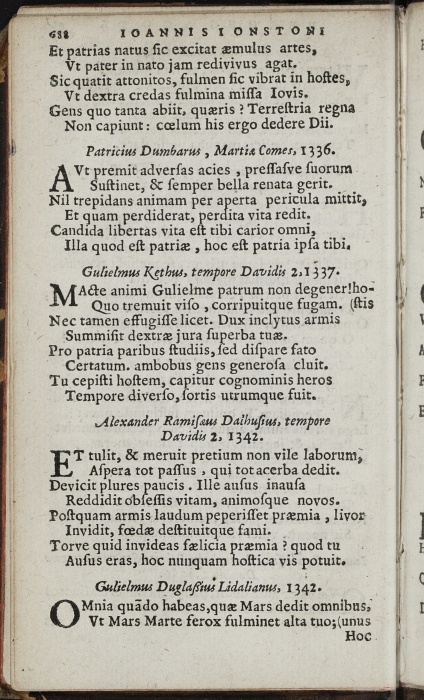 688 IOANNIS IONSTONI
Et patrias natus sic excitat æmulus artes,
Vt pater in nato jam redivivus agat.
Sic quatit attonitos, fulmen sic vibrat in hostes,
Vt dextra credas fulmina missa Iovis.
Gens quo tanta abiit, quæris? Terrestria regna
Non capiunt: cœlum his ergo dedere Dii.
Patricius Dumbarus, Martiæ Comes, 1336.
AVt premit adversas acies, pressasve suorum
Sustinet, & semper bella renata gerit.
Nil trepidans animam per aperta pericula mittit,
Et quam perdiderat, perdita vita redit.
Candida libertas vita est tibi carior omni,
Illa quod est patriæ, hoc est patria ipsa tibi.
Gulielmus Kethus, tempore Davidis 2. 1337.
MActe animi Gulielme patrum non degener! ho-
Quo tremuit viso, corripuitque fugam. (stis
Nec tamen effugisse licet. Dux inclytus armis
Summisit dextræ jura superba tuæ.
Pro patria paribus studiis, sed dispare fato
Certatum. ambobus gens generosa cluit.
Tu cepisti hostem, capitur cognominis heros
Tempore diverso, sortis utrumque fuit.
Alexander Ramisæus Dalhusius, tempore
Davidis 2, 1342.
ET tulit, & meruit pretium non vile laborum,
Aspera tot passus, qui tot acerba dedit.
Devicit plures paucis. Ille ausus inausa
Reddidit obsessis vitam, animosque novos.
Postquam armis laudum peperisset præmia, livor
Invidit, fœdæ destituitque fami.
Torve quid invideas fælicia præmia? quod tu
Ausus eras, hoc nunquam hostica vis potuit.
Gulielmus Duglassius Lidalianus, 1342.
OMnia quãdo habeas, quæ Mars dedit omnibus,
Vt Mars Marte ferox fulminet alta tuo; (unus
Hoc